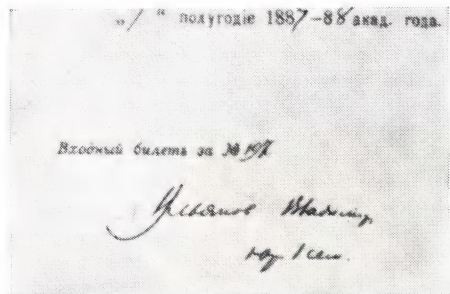 „1“ полугодіе 1887–88 акад. года.
Входный билетъ за № 197
Ульянов Владимир,
юр. 1 сем.